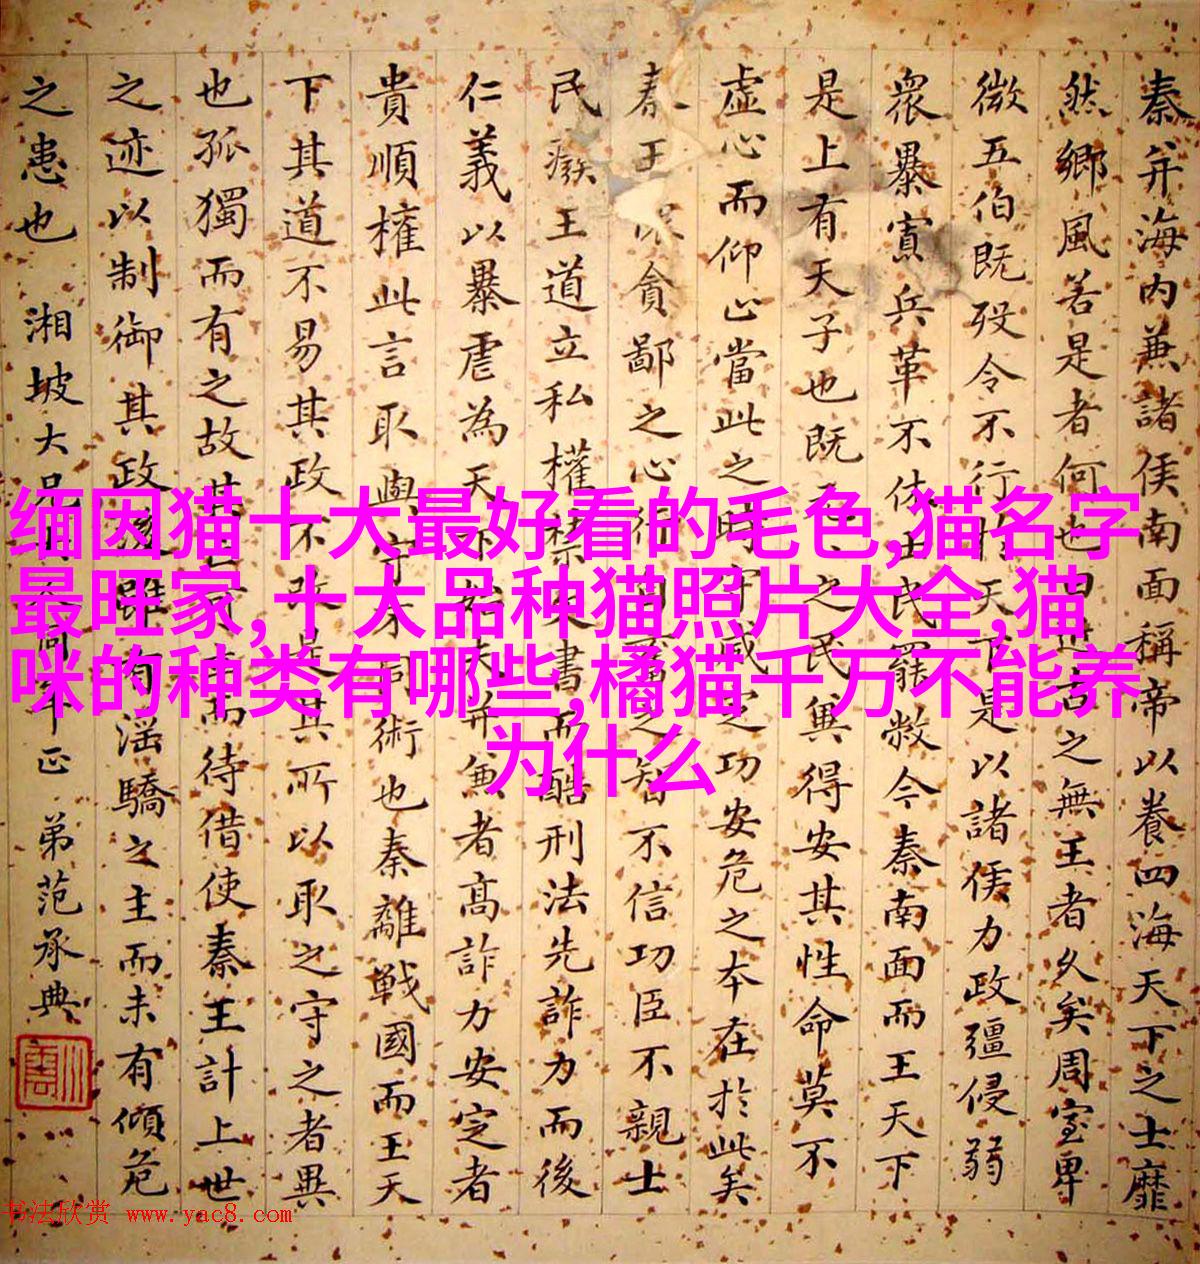 秦并海内兼諸侯南面稱帝以養四海天下之士靡
然鄉風若是者何也曰近古之無王者久矣周室卑
微五伯既歿令不行於天下是以諸侯力政彊侵弱
衆暴寡兵革不休士民罷敝今秦南面而王天下
是上有天子也既元之民兾得安其性命莫不
虛心而仰上當此之時守威定功安危之本在於此矣
秦王懷貪鄙之心行自奮之智不信功臣不親士
民廢王道立私權禁文書而酷刑法先詐力而後
仁義以暴虐為天下始夫并兼者高詐力安定者
貴順權此言取與守不同術也秦離戰國而王天
下其道不易其政不改是其所以取之守之者異
也孤獨而有之故其亡可立而待借使秦王計上世
之迹以制御其政後雖有淫驕之主而未有傾危
之患也 湘坡大兄大人同年正 弟范承典
缅因猫十大最好看的毛色,猫名字
最旺家,十大品种猫照片大全,猫
咪的种类有哪些,橘猫千万不能养
为什么
书法欣赏 www.yac8.com